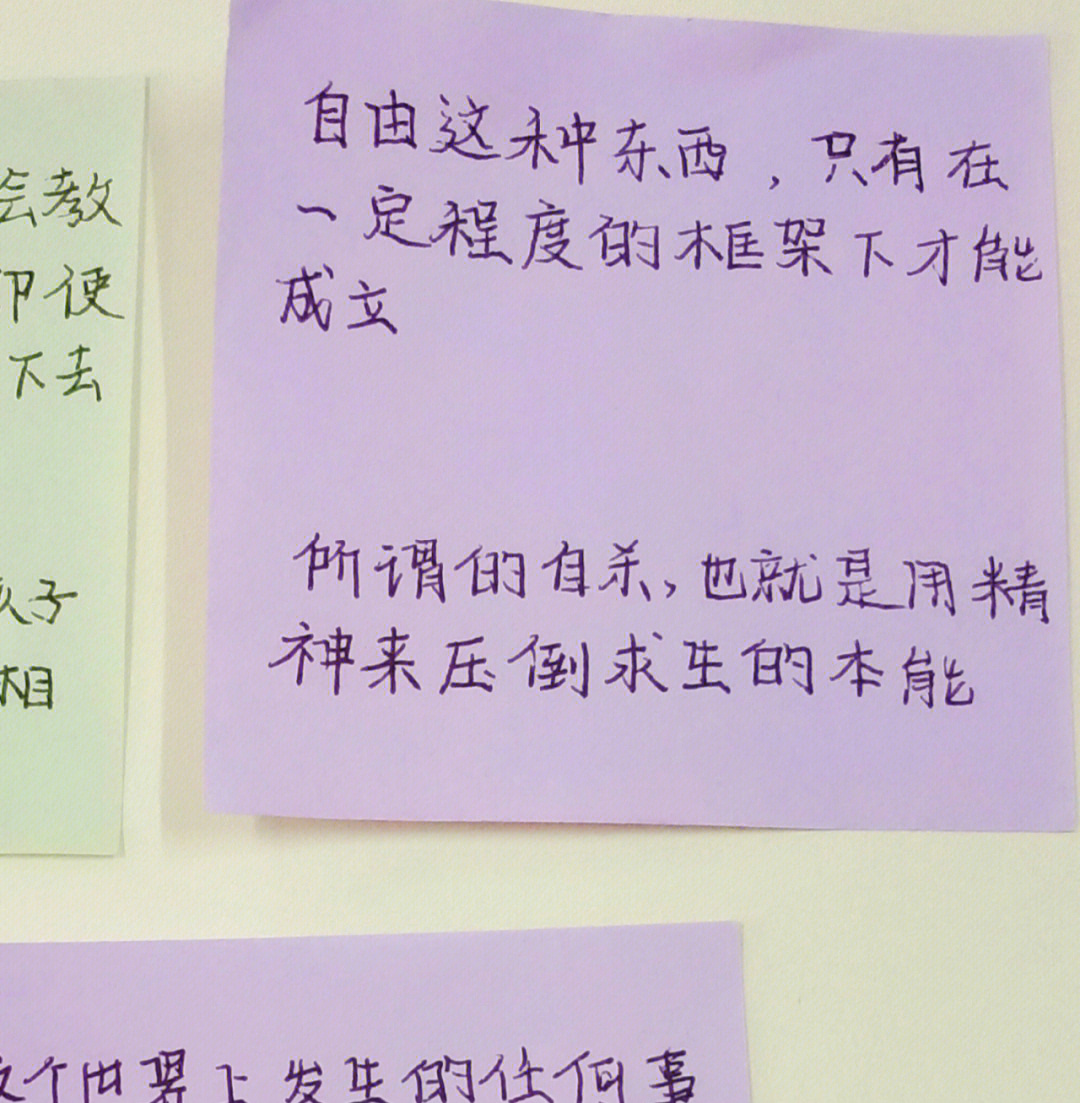 自由这种东西，只有在
一定程度的框架下才能
成立
所谓的自杀，也就是用精
神来压倒求生的本能
会教
即便
下去
孩子
相
这个世界上发生的任何事